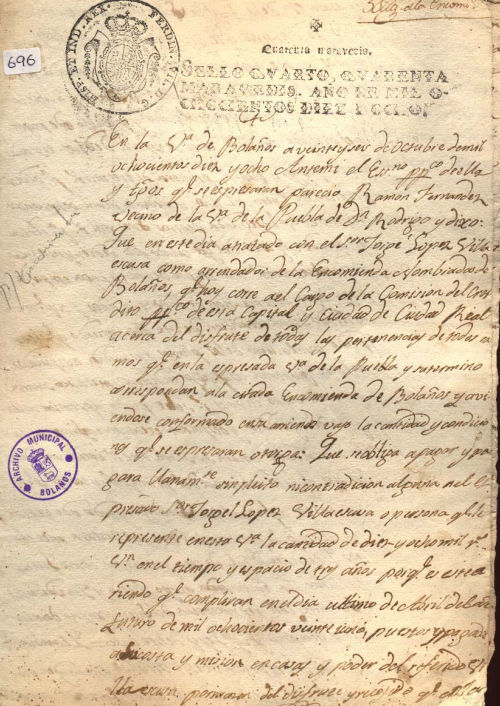 Oblig. a la Encomi
696
FERDIN. VII. D. G.
HISP. ET IND. REX
Quarenta maravedis.
SELLO QVARTO, QVARENTA
MARAVEDIS, AÑO DE MIL O-
CHOCIENTOS DIEZ Y OCHO.
En la Vª de Bolaños a veinte y seis de Octubre de mil
ochocientos diez y ocho Antemi el Esno ppco de ella
y tgos qe se espresaran parecio Ramon Fernandez
Vecino de la Vª de la Puebla de Dn Rodrigo y dixo:
Que en este dia a tratado con el Sor Jorge Lopez Villa
escusa como arrendador de la Encomienda nombrada de
Bolaños, qe hoy corre al Cargo de la Comision del Cre
dito ppco de esta Capital y Ciudad de Ciudad Real
acerca del disfrute de todas las pertenencias de todos ra
mos qe en la espresada Vª de la Puebla y su termino
correspondan a la citada Encomienda de Bolaños y avi
endose conformado en su arriendo vajo la cantidad y condicio
nes qe se espresaran otorga: Que se obliga a pagar y pa
gara llanamte sin pleito ni contradicion alguna al es
presado Sor Jorge Lopez Villaescusa o persona qe le
represente en esta Vª la cantidad de diez y ocho mil rs
Vn en el tiempo y espacio de tres años porqe es este
riendo qe cumpliran en el dia ultimo de Abril del año
futuro de mil ochocientos veinte y uno, puestos y pagados
a su costa y mision en casa y poder del referido Vi
llaescusa, por razon del disfrute y
ARCHIVO MUNICIPAL
BOLAÑOS